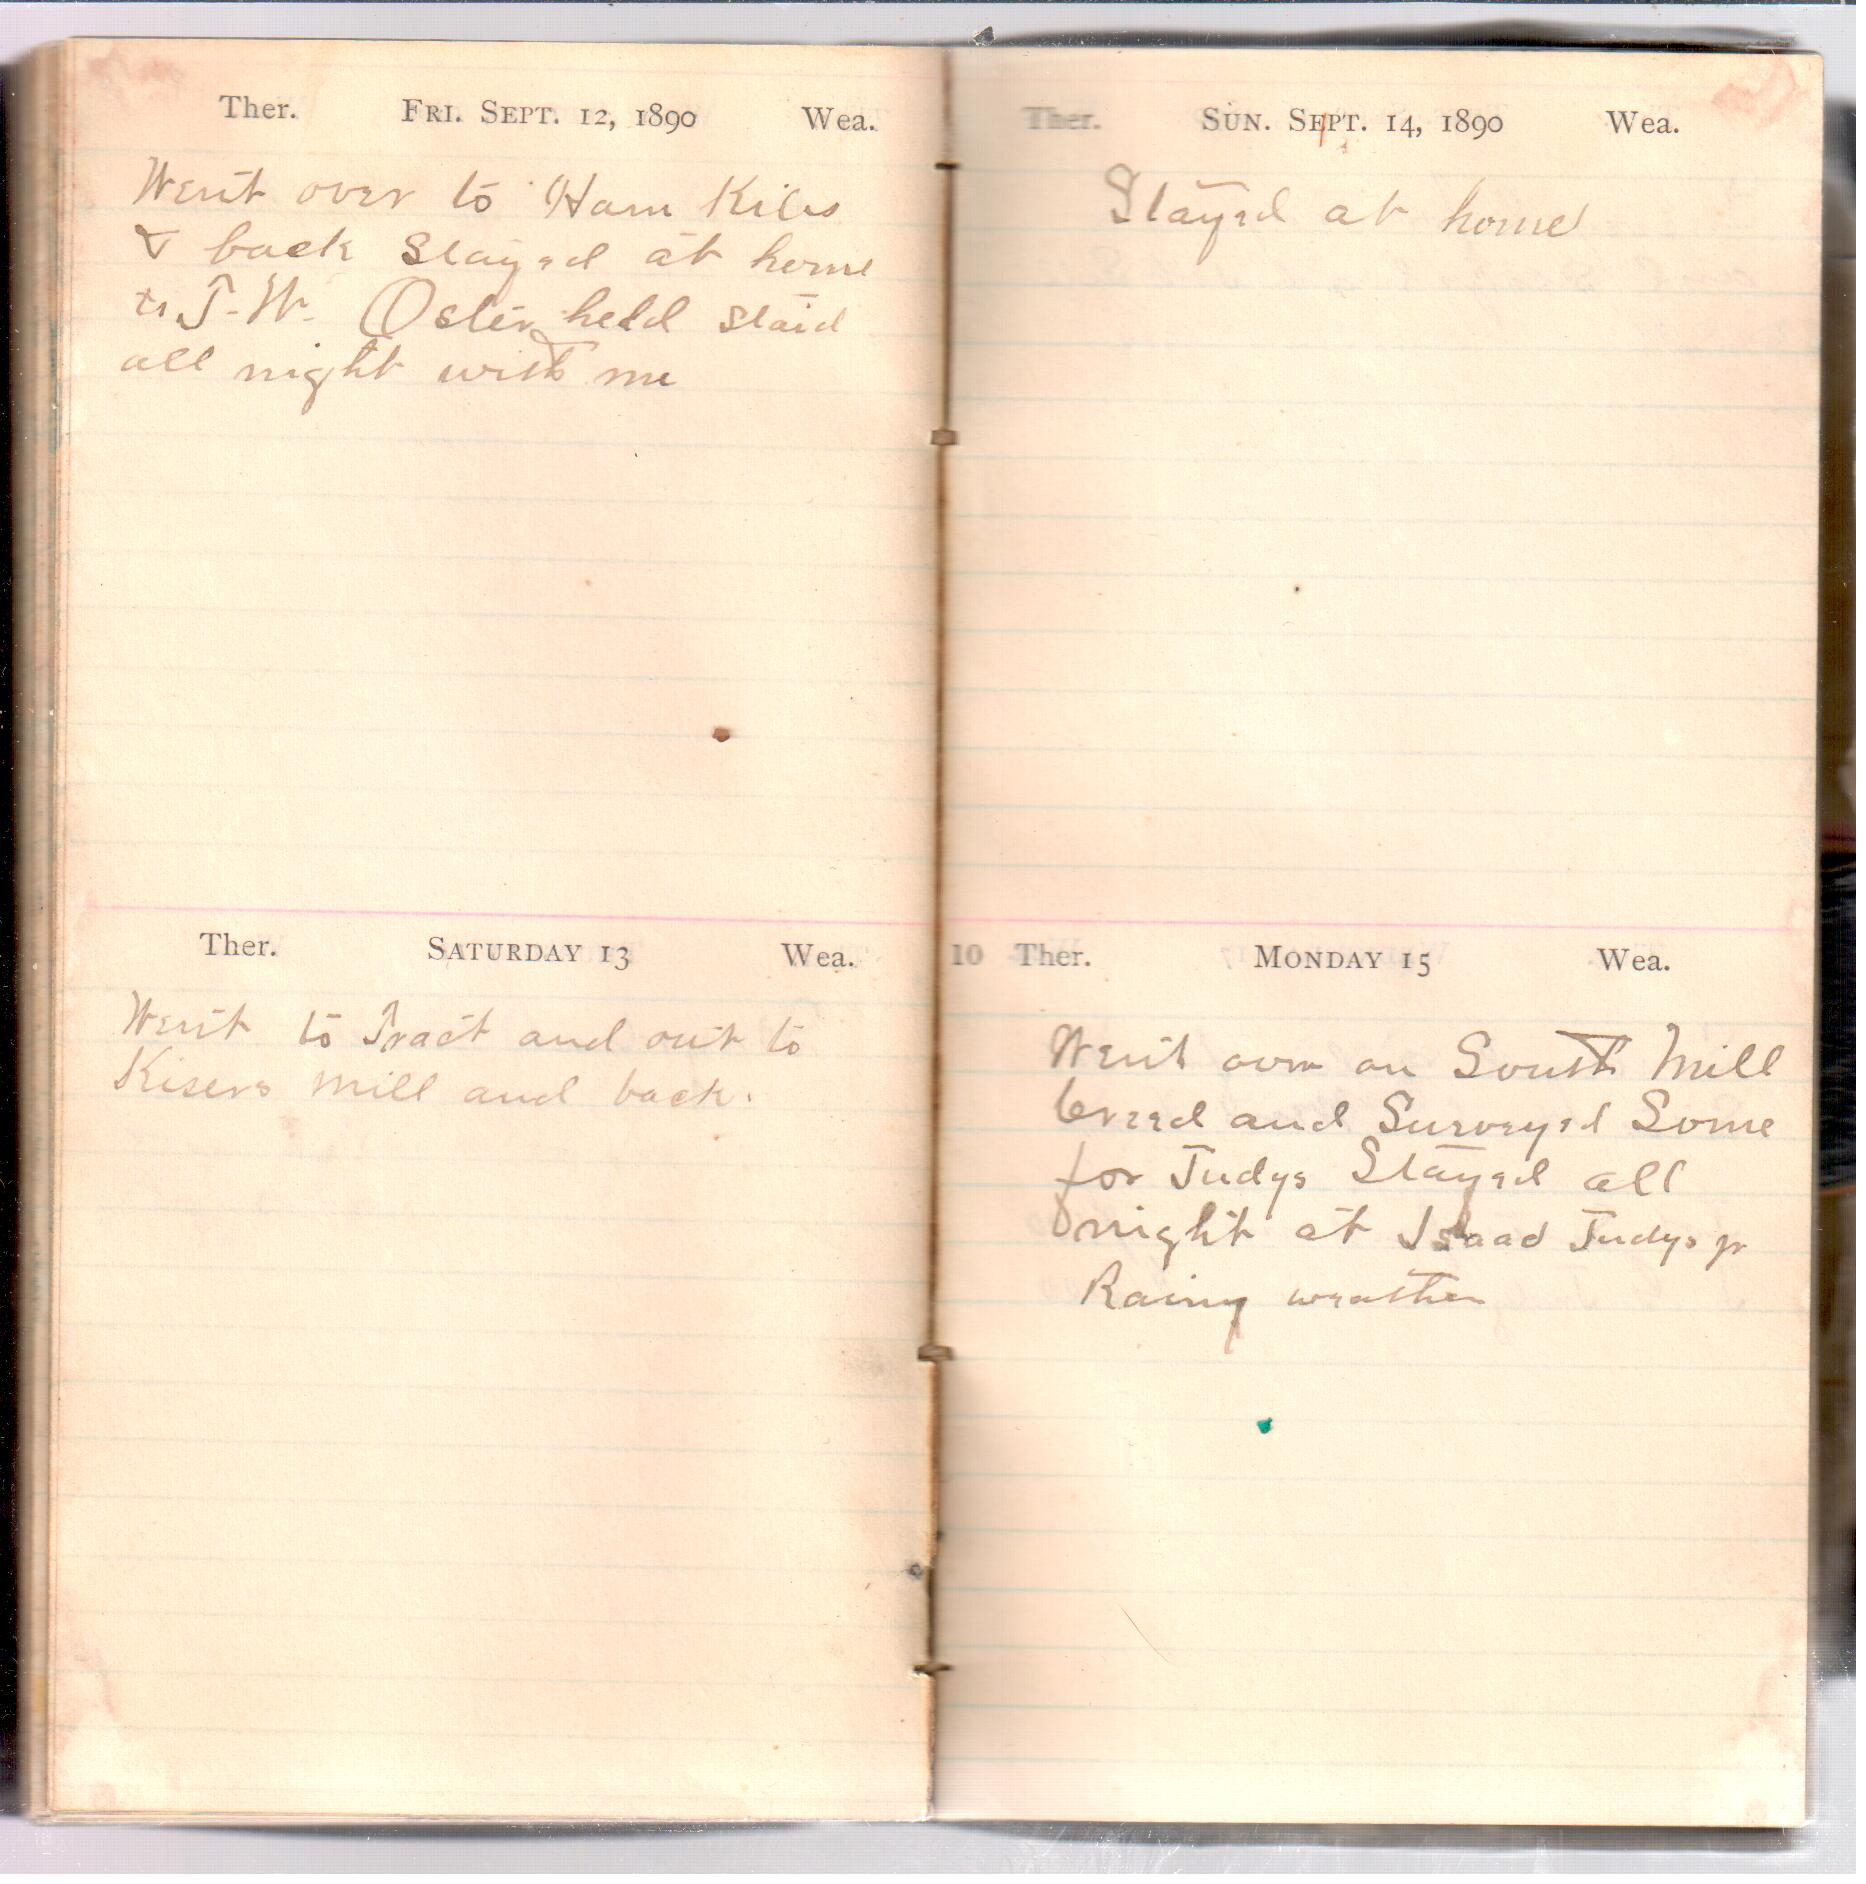 Ther. FRI. SEPT. 12, 1890 Wea.
Went over to Ham Kiles
& back Stayed at home
J. W. Osterheld staid
all night with me
Ther. SATURDAY 13 Wea.
Went to Tract and out to
Kisers Mill and back.
Ther. SUN. SEPT. 14, 1890 Wea.
Stayed at home
10 Ther. MONDAY 15 Wea.
Went over on South Mill
and Surveyed Some
for Judys Stayed all
night at Isaac Judys jr
Rainy weather